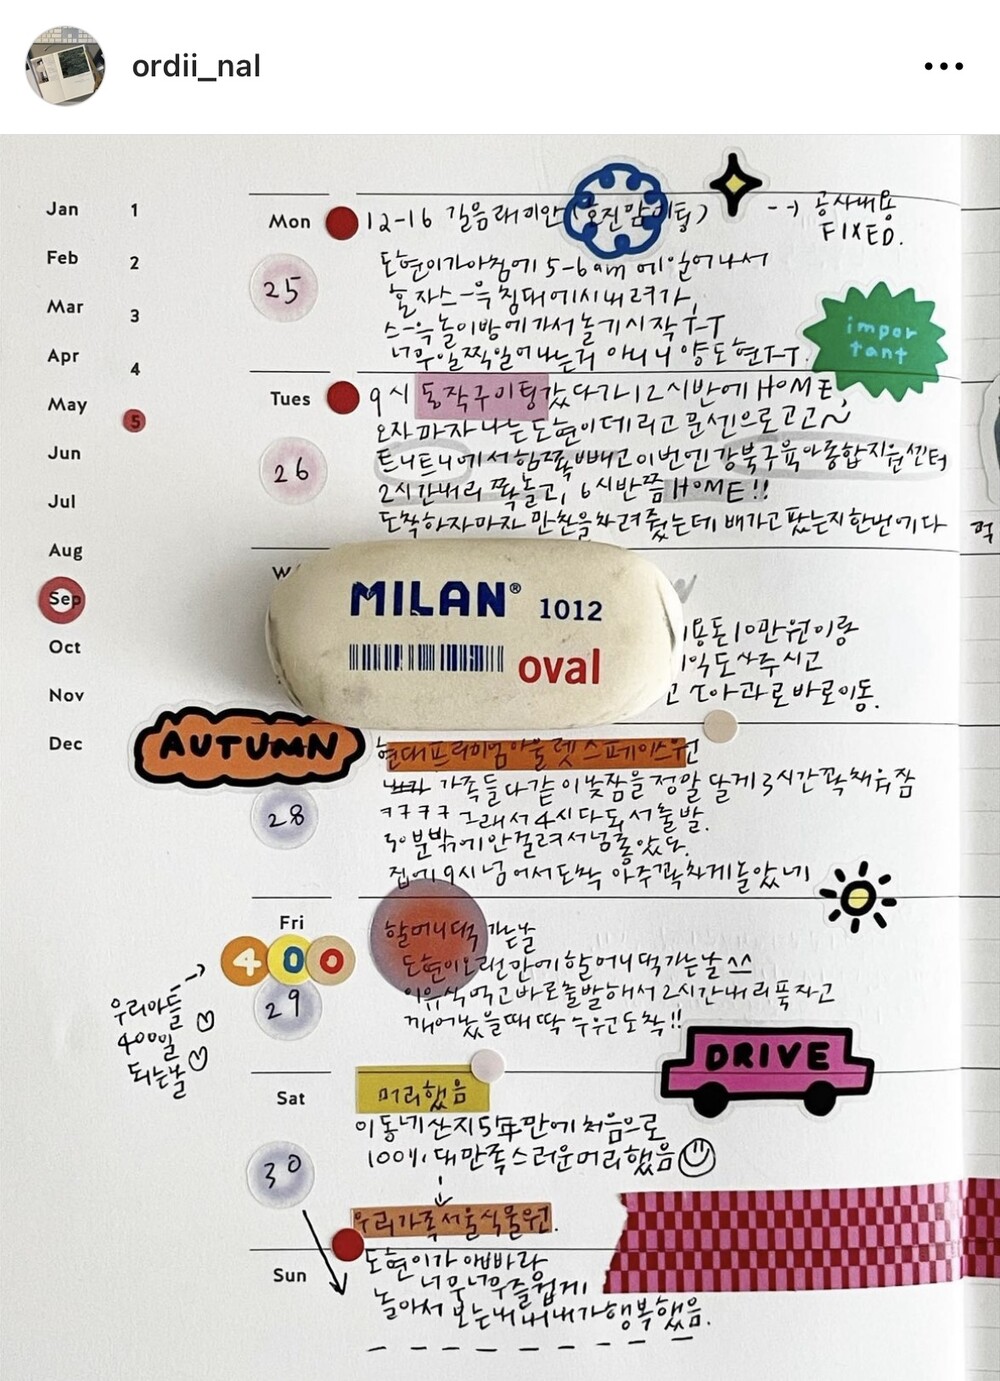 ordii_nal
Jan
Feb
Mar
Apr
May
Jun
Jul
Aug
Sep
Oct
Nov
Dec
1
2
3
4
5
Mon
25
12-16 길음래미안
--> 공사내용
FIXED.
도현이가 아침에 5-6am 에 일어나서
혼자 스-윽 침대에서 내려가,
스-윽 놀이방에 가서 놀기 시작 T-T
너무 일찍 일어나는거 아니니 양도현 T-T.
impor
tant
Tues
26
9시 동작구미팅 갔다가 12시반에 HOME,
오자마자 나는 도현이 데리고 문센으로 고고~
트니트니에서 힘쫙 빼고 이번엔 강북구육아종합지원센터
2시간내리 쫙놀고, 6시반쯤 HOME!!
도착하자마자 만찬을 차려줬는데 배가고팠는지 한번에 다
MILAN® 1012
oval
용돈10만원이랑
사주시고
바로이동.
AUTUMN
28
현대프리미엄아울렛 스페이스원
가족들 다같이 낮잠을 정말 달게 3시간 꽉 채워 잠
ㅋㅋㅋㅋ 그래서 4시 다 돼서 출발.
30분밖에 안걸려서 넘 좋았다.
집에 9시 넘어서 도착 아주 꽉차게 놀았네
Fri
400
29
우리아들
400일
되는날
할머니댁 가는날
도현이 오랜만에 할머니댁 가는날 ^^
이유식 먹고 바로 출발해서 2시간 내리 푹 자고
깨어났을때 딱 수원 도착!!
DRIVE
Sat
30
머리했음
이동네 산지 5年만에 처음으로
100% 대만족스러운 머리했음
우리가족 서울식물원.
Sun
도현이가 아빠랑
너무너무 즐겁게
놀아서 보는내내 내가 행복했음.